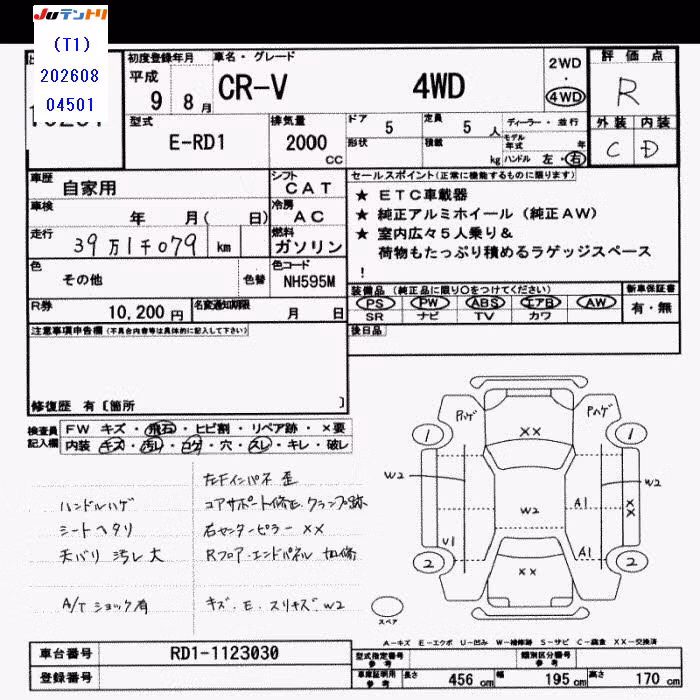 JUテントリ
(T1)
202608
04501
初度登録年月
平成
9 8 月
車名・グレード
CR-V 4WD
2WD
・
4WD
評価点
R
型式
E-RD1
排気量
2000
CC
ドア
5
定員
5 人
ディーラー・並行
形状
積載
kg
モデル
年式 年
ハンドル 左・右
外装 内装
C D
車歴
自家用
シフト
CAT
車検
年 月( 日)
冷房
AC
走行
39万1千079 km
燃料
ガソリン
色
その他
色替
色コード
NH595M
R券
10,200 円
名変通知期限
月 日
セールスポイント(正常に機能するものに限ります)
★ ETC車載器
★ 純正アルミホイール(純正AW)
★ 室内広々5人乗り&
荷物もたっぷり積めるラゲッジスペース
!
装備品 (純正品に限り○をつけてください)
PS PW ABS エアB AW
SR ナビ TV カワ
新車保証書
有・無
後日品
注意事項申告欄(不具合内容等は具体的に記入して下さい)
修復歴 有〔箇所 〕
検査員
記入欄
FW キズ・飛石・ヒビ割・リペア跡・×要
内装 キズ・汚レ・コゲ・穴・スレ・キレ・破レ
ハンドルハゲ
シートヘタリ
天バリ 汚レ大
A/Tショック有
左Fインパネ 歪
コアサポート修正.クランプ跡
右センターピラー XX
Rフロア・エンドパネル 加修
キズ.E.スリキズ.W2
Pハゲ
Pハゲ
1
1
XX
W2
W2
W2
A1
XX
U1
A1
2
2
XX
スペア
A-キズ E-エクボ U-凹み W-補修跡 S-サビ C-腐食 XX-交換済
車台番号
RD1-1123030
登録番号
型式指定番号
参考
類別区分番号
参考
車庫証明用
参考
長さ 456 cm 幅 195 cm 高さ 170 cm